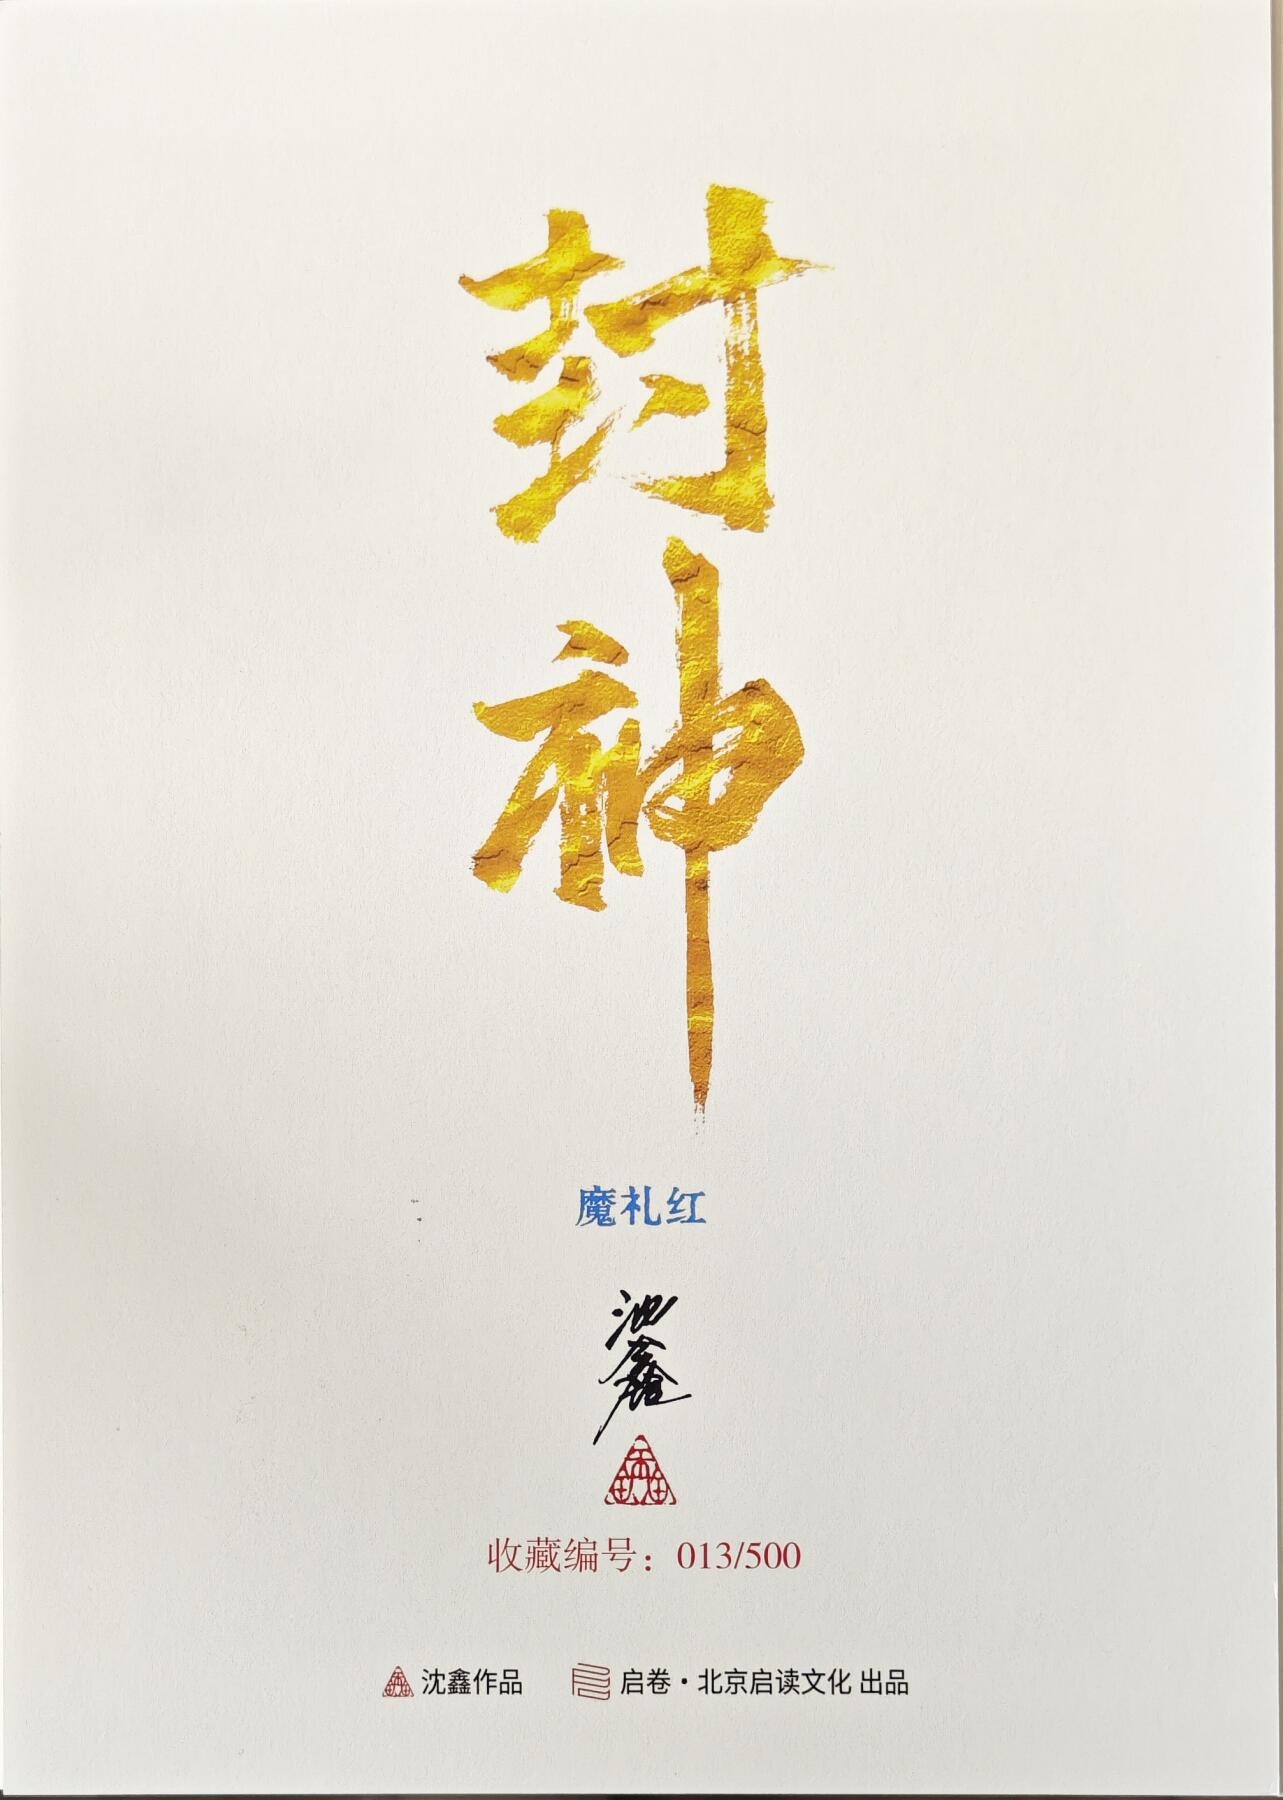 封神
魔礼红
沈鑫
收藏编号：013/500
沈鑫作品 启卷·北京启读文化 出品